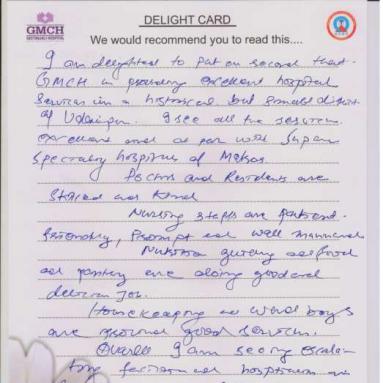 GMCH
GEETANJALI HOSPITAL
DELIGHT CARD
We would recommend you to read this....
I am delighted to put on record that
GMCH is providing excellent hospital
Services in a historical but small district
of Udaipur. I see all the services
excellent and at par with Super
Speciality hospitals of Metros.
Doctors and Residents are
Skilled and Kind
Nursing staffs are patient
friendly, Prompt and well mannered
Nutrition giving
and are doing good and
Job.
Housekeeping and ward boys
are good services.
Overall I am seeing
hospital